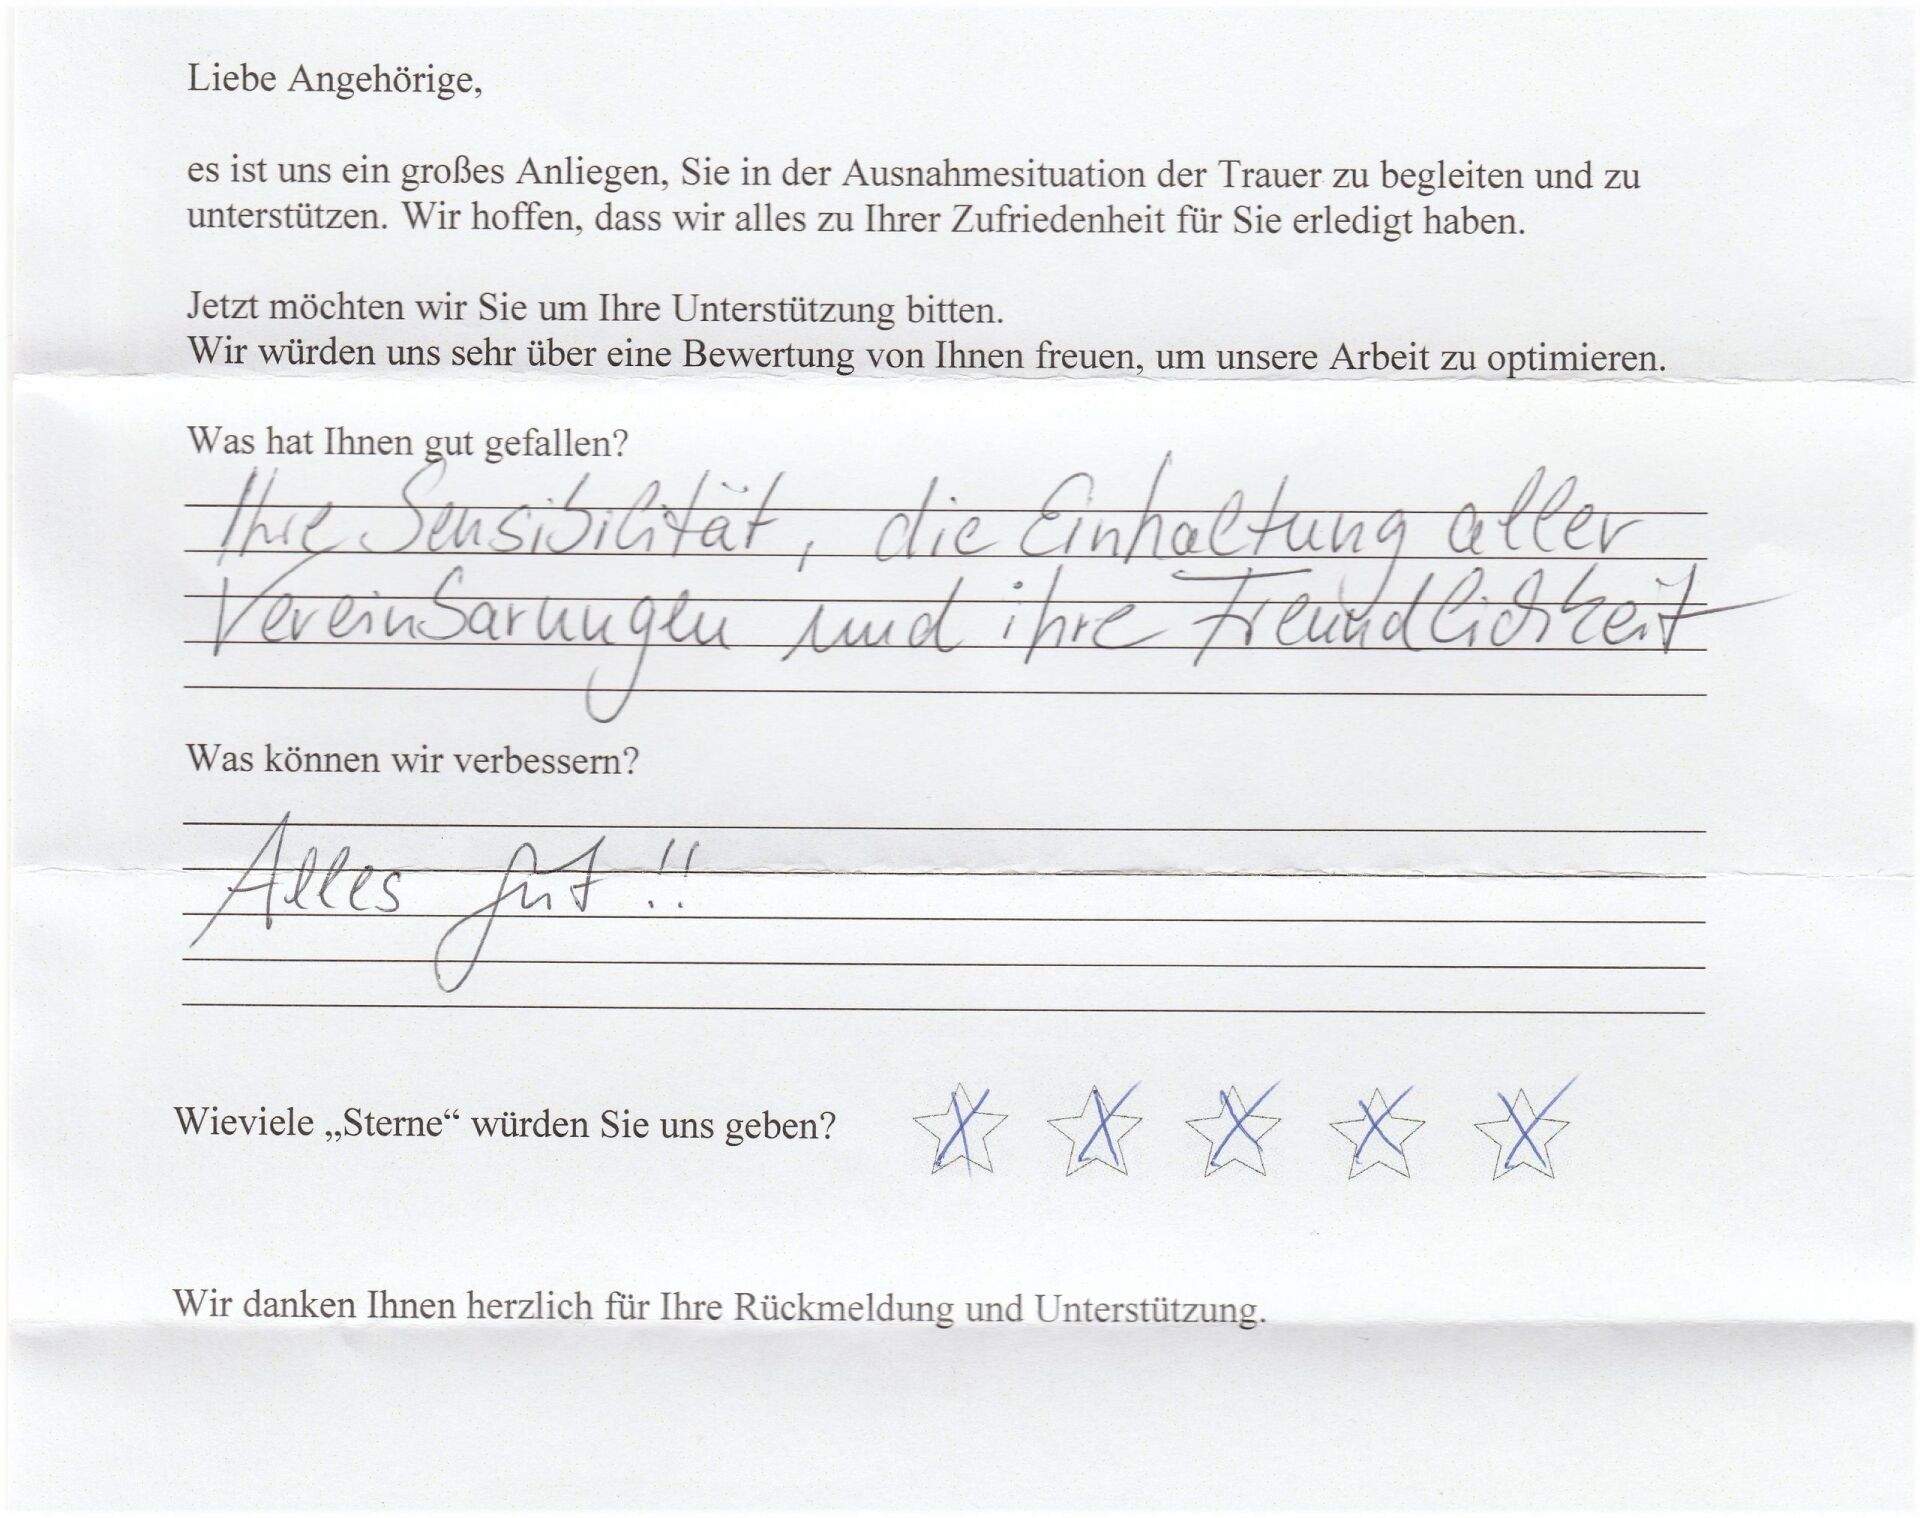 Liebe Angehörige,
es ist uns ein großes Anliegen, Sie in der Ausnahmesituation der Trauer zu begleiten und zu
unterstützen. Wir hoffen, dass wir alles zu Ihrer Zufriedenheit für Sie erledigt haben.
Jetzt möchten wir Sie um Ihre Unterstützung bitten.
Wir würden uns sehr über eine Bewertung von Ihnen freuen, um unsere Arbeit zu optimieren.
Was hat Ihnen gut gefallen?
Ihre Sensibilität, die Einhaltung aller
Vereinbarungen und ihre Freundlichkeit
Was können wir verbessern?
Alles gut!!
Wieviele „Sterne“ würden Sie uns geben?
Wir danken Ihnen herzlich für Ihre Rückmeldung und Unterstützung.